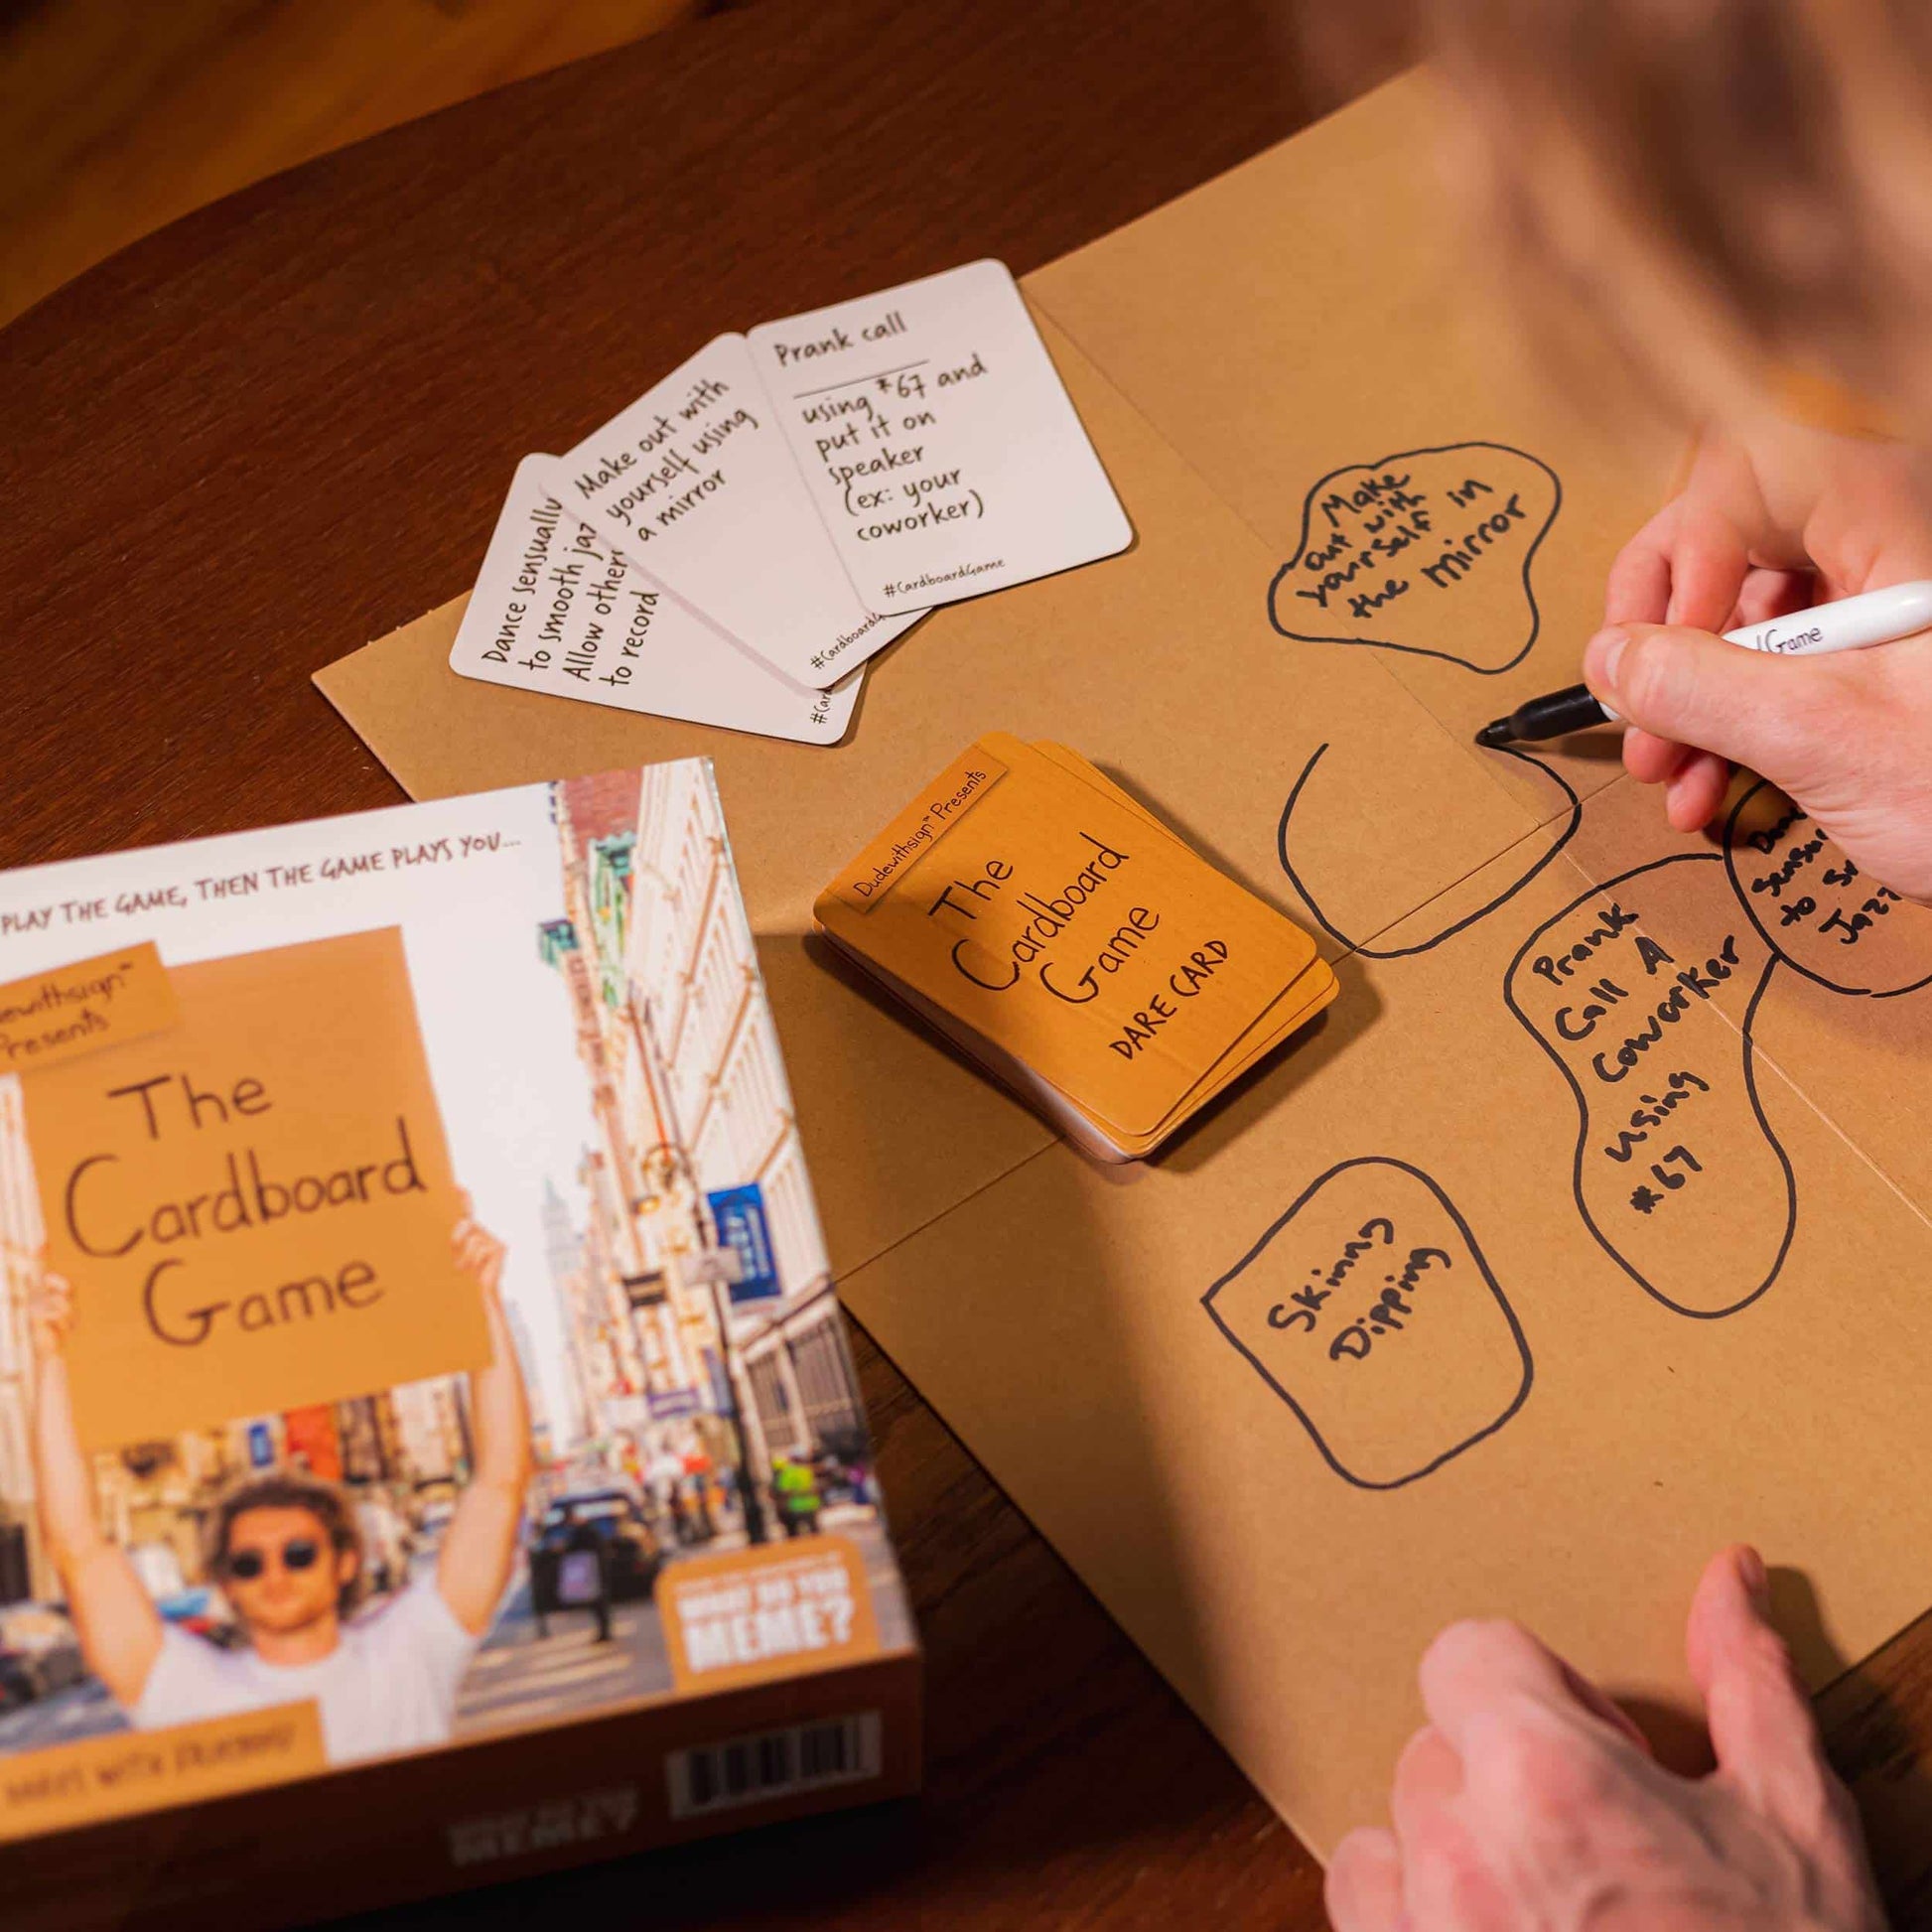 Prank call
using *67 and
put it on
speaker
(ex: your
coworker)
#CardboardGame
Make out with
yourself using
a mirror
Dance sensually
to smooth
Allow
to record
Dudewithsign™ Presents
The
Cardboard
Game
DARE CARD
Make
out with
yourself in
the mirror
Prank
Call A
Coworker
using
*67
to
Jazz
Skinny
Dipping
Game
PLAY THE GAME, THEN THE GAME PLAYS YOU...
Presents
The
Cardboard
Game
WHAT DO YOU
MEME?
WITH
MEME?